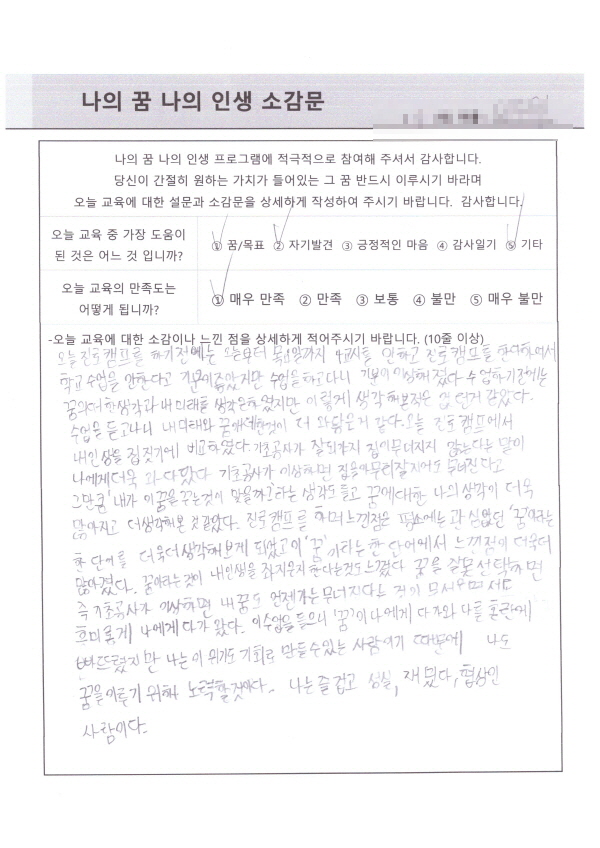 나의 꿈 나의 인생 소감문
나의 꿈 나의 인생 프로그램에 적극적으로 참여해 주셔서 감사합니다.
당신이 간절히 원하는 가치가 들어있는 그 꿈 반드시 이루시기 바라며
오늘 교육에 대한 설문과 소감문을 상세하게 작성하여 주시기 바랍니다. 감사합니다.
오늘 교육 중 가장 도움이
된 것은 어느 것 입니까?
① 꿈/목표 ② 자기발견 ③ 긍정적인 마음 ④ 감사일기 ⑤ 기타
오늘 교육의 만족도는
어떻게 됩니까?
① 매우 만족 ② 만족 ③ 보통 ④ 불만 ⑤ 매우 불만
-오늘 교육에 대한 소감이나 느낀 점을 상세하게 적어주시기 바랍니다. (10줄 이상)
오늘 진로캠프를 하기 전에는 오늘부터 목요일까지 4교시를 안하고 진로캠프를 한다하여서
학교수업을 안한다고 기분이 좋았지만 수업을 하고나니 기분이 이상해 졌다. 수업하기전에는
꿈에대한생각과 내 미래를 생각은하였지만 이렇게 생각해본적은 없던거 같았다.
수업을 듣고나니 내미래와 꿈에대한것이 더 와닿은거 같다. 오늘 진로캠프에서
내인생을 집짓기에 비교하였다. 기초공사가 잘되야지 집이무너지지 않는다는 말이
나에게더욱 와 다았다. 기초공사가 이상하면 집을아무리잘지어도 무너진다고
그만큼 '내가 이꿈을꾸는것이 맞을까'라는 생각도 들고 꿈에대한 나의생각이 더욱
많아지고 더생각해본 것같았다. 진로캠프를 하며느낀점은 평소에는 관심없던 '꿈'이라는
한 단어를 더욱더생각해보게 되었고 이 '꿈'이라는한 단어에서 느낀점이 더욱더
많아졌다. 꿈이라는것이 내인생을 좌지우지한다는것도느꼈다. 꿈을 잘못선택하면
즉 기초공사가 이상하면 내 꿈도 언젠가는무너지다는 것이 무서우며서도
흥미롭게 나에게다가 왔다. 이수업을들으니 '꿈'이나에게 다가와 나를 혼란에
빠뜨렸지만 나는 이 위기도 기회로 만들수있는 사람이기 때문에 나도
꿈을이루기 위해 노력할것이다. 나는 즐겁고 성실, 재밌다,
사람이다.